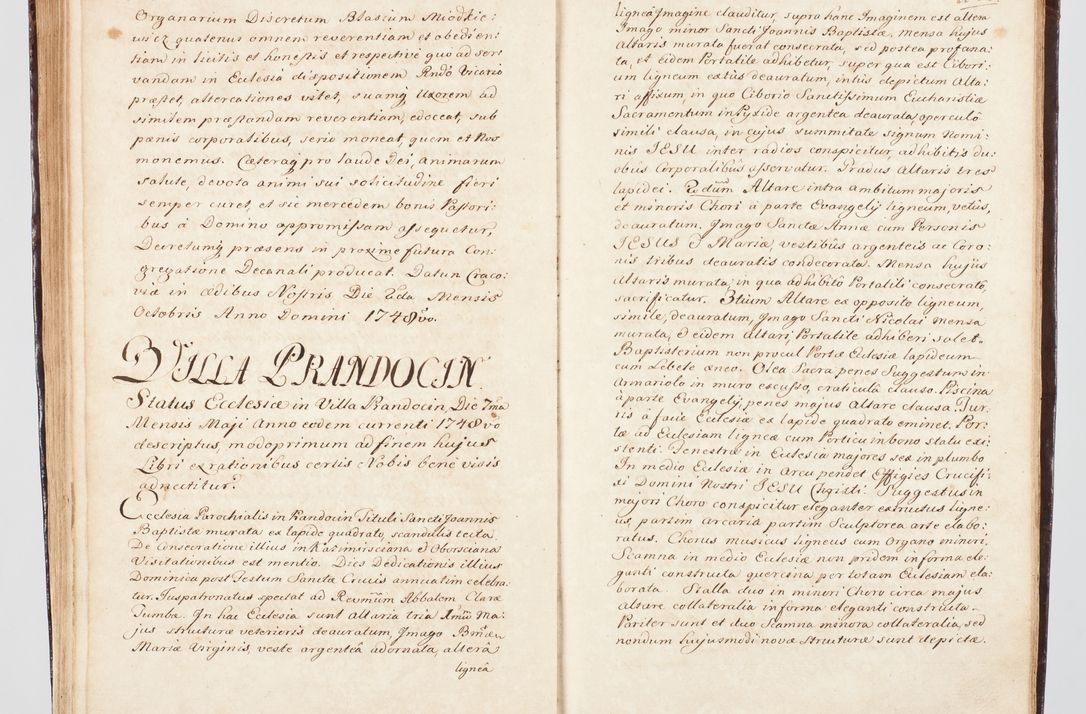 Organarium Discretum Blasium Miodkie:
wicz quatenus omnem reverentiam et obedien:
tiam in licitis et honestis et respective quo ad ser:
vandam in Ecclesia dispositionem Rndo Vicario
præstet, altercationes vitet, suamq Uxorem ad
similem præstandam reverentiam, edoceat, sub
pœnis corporalibus, serio moneat, quem et Nos
monemus. Cæteraq pro laude Dei, animarum
salute, devota animi sui solicitudine fieri
semper curet, et sic mercedem bonis Pastori:
bus â Domino appromissam assequetur,
Decretumq præsens in proxime futura Con:
gregatione Decanali producat. Datum Craco:
viæ in ædibus Nostris Die 2da Mensis
Octobris Anno Domini 1748vo.
VILLA PRANDOCIN
Status Ecclesiæ in Villa Prandocin, Die 7ma
Mensis Maji Anno eodem currenti 1748vo
descriptus, modo primum ad finem hujus
Libri ex rationibus certis Nobis bene visis
adnectitur.
Ecclesia Parochialis in Randocin Tituli Sancti Joannis
Baptistæ murata ex lapide quadrato, scandulis tecta.
De Consecratione illius in Kazimirsciana & Oborsciana
Visitationibus est mentio. Dies Dedicationis illius
Dominica post Festum Sanctæ Crucis annuatim celebra:
tur. Juspatronatus spectat ad Revmum Abbatem Claræ
Tumbæ. In hac Ecclesia sunt altaria tria 1mum Ma:
jus structuræ veterieris deauratum, Imago Bmæ
Mariæ Virginis, veste argenteâ adornata, alterâ
ligneâ
ligneâ Imagine clauditur, supra hanc Imaginem est altera
Imago minor Sancti Joannis Baptistæ, mensa hujus
Altaris murata fuerat consecrata, sed postea profana:
ta, et eidem Portatile adhibetur, super qua est Cibori:
um ligneum extus deauratum, intus depictum Alta:
ri affixum, in quo Ciborio Sanctissimum Eucharistiæ
Sacramentum in Pyxide argentea deaurata, operculô
simili clausa, in cujus summitate signum Nomi:
nis IESU inter radios conspicitur, adhibitis du:
obus Corporalibus asservatur. Gradus Altaris tres
lapidei. 2dum Altare intra ambitum majoris
et minoris Chori â parte Evangelij ligneum, vetus,
deauratum, Imago Sanctæ Annæ cum Personis
IESUS & Mariæ, vestibus argenteis ac Coro:
nis tribus deauratis condecorata. Mensa hujus
Altaris murata, in qua adhibitô Portatili consecratô,
sacrificatur. 3tium Altare ex opposito ligneum,
simile, deauratum, Imago Sancti Nicolai mensa
murata, & eidem altari, Portatile adhiberi solet.
Baptisterium non procul Portæ Ecclesiæ lapideum
cum Lebete æneo. Olea Sacra penes Suggestum in
Armariolo in muro excusso, craticulâ clauso. Piscina
â parte Evangelij, penes majus Altare clausa. Tur:
ris â facie Ecclesiæ ex lapide quadrato eminet. Por:
tæ ad Ecclesiam ligneæ cum Porticu in bono statu exi:
stenti. Fenestræ in Ecclesia majores sex in plumbo
In medio Ecclesiæ in Arcu pendet Effigies Crucifi:
xi Domini Nostri IESU Christi. Suggestus in
majori Choro conspicitur eleganter extructus ligne:
us, partim Arcaria partim Sculptorea arte elabo:
ratus. Chorus musicus ligneus cum Organo minori,
Scamna in medio Ecclesiæ non pridem in forma ele:
ganti constructa quercina per totam Ecclesiam ela:
borata. Stalla duo in minori Choro circa majus
Altare collateralia in forma eleganti constructa.
Pariter sunt et duo Scamna minora collateralia, sed
nondum hujusmodi novæ structuræ sunt depictæ.